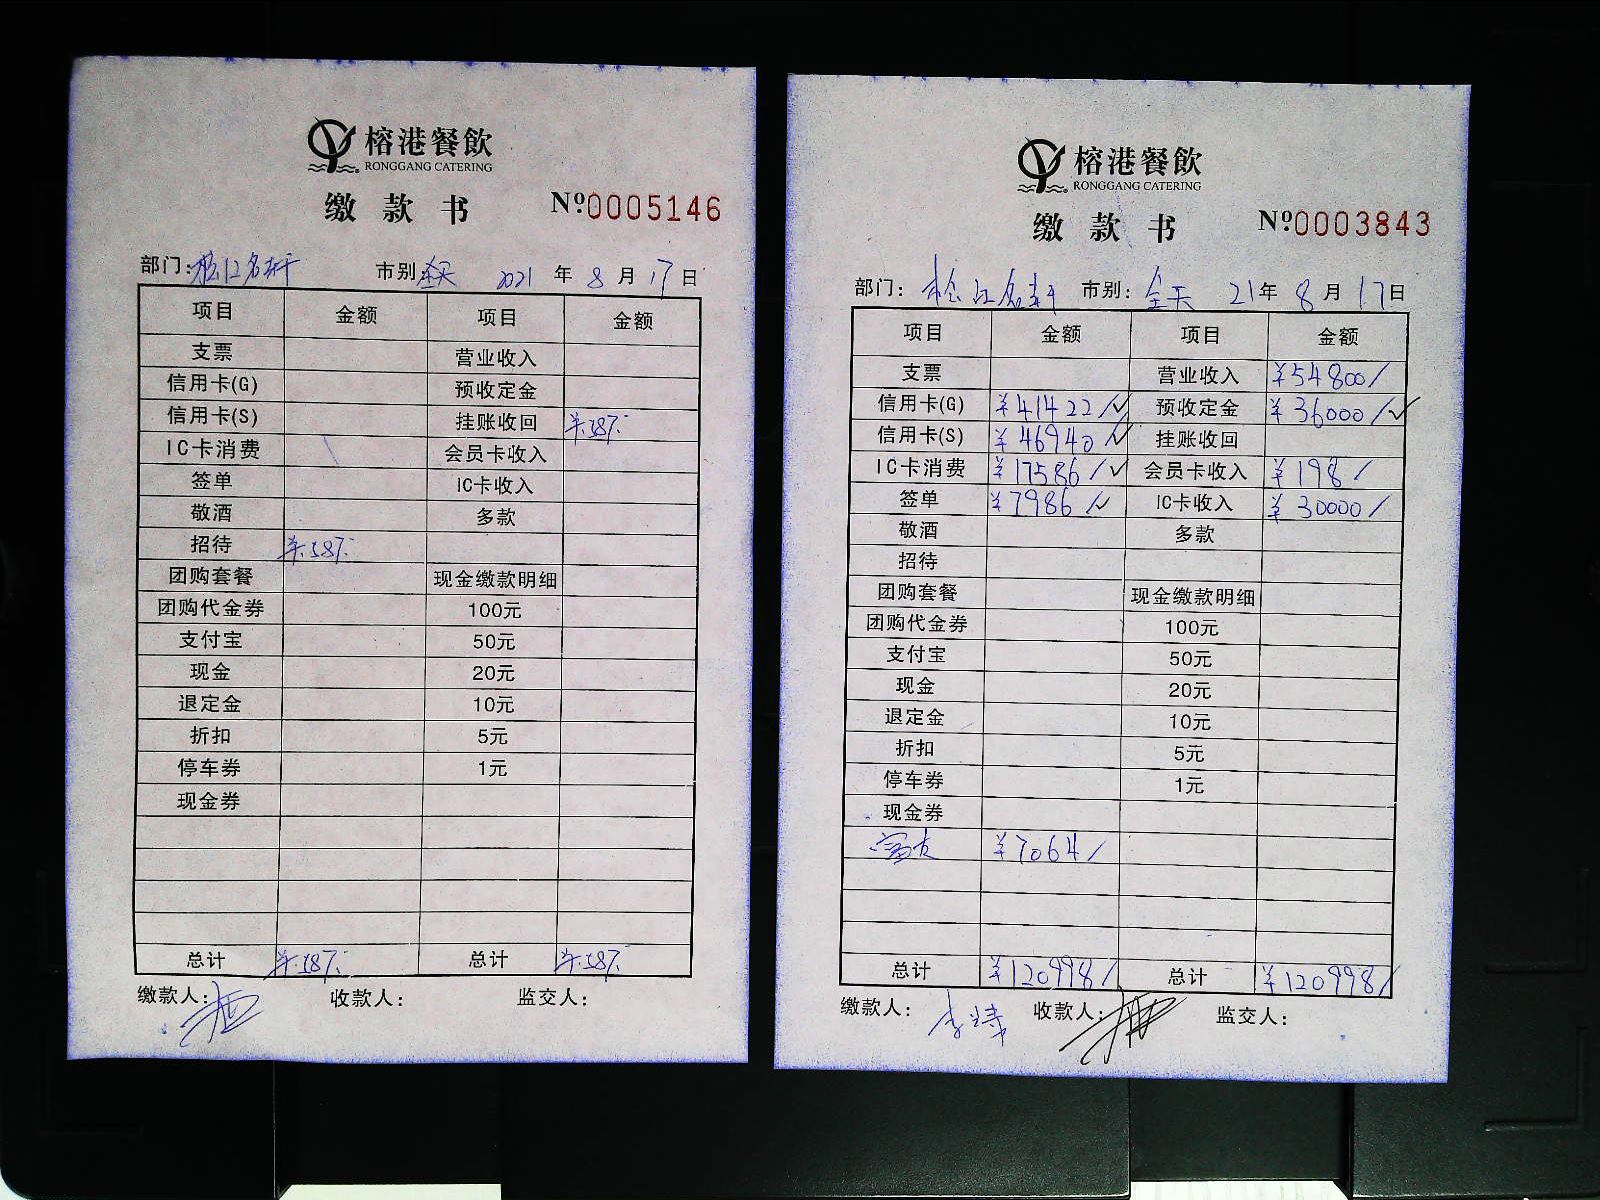 榕港餐飲
RONGGANG CATERING
缴款书 Nº0005146
部门：松江名轩 市别：全天 2021年8月17日
项目 金额 项目 金额
支票 营业收入
信用卡(G) 预收定金
信用卡(S) 挂账收回 ¥:587.
IC卡消费 会员卡收入
签单 IC卡收入
敬酒 多款
招待 ¥:587.
团购套餐 现金缴款明细
团购代金券 100元
支付宝 50元
现金 20元
退定金 10元
折扣 5元
停车券 1元
现金券
总计 ¥:587. 总计 ¥:587.
缴款人： 收款人： 监交人：
榕港餐飲
RONGGANG CATERING
缴款书 Nº0003843
部门：松江名轩 市别：全天 21年8月17日
项目 金额 项目 金额
支票 营业收入 ¥54800/
信用卡(G) ¥41422/✓ 预收定金 ¥36000/✓
信用卡(S) ¥46940✓ 挂账收回
IC卡消费 ¥17586/✓ 会员卡收入 ¥198/
签单 ¥7986/✓ IC卡收入 ¥30000/
敬酒 多款
招待
团购套餐 现金缴款明细
团购代金券 100元
支付宝 50元
现金 20元
退定金 10元
折扣 5元
停车券 1元
现金券
富友 ¥7064/
总计 ¥120998/ 总计 ¥120998/
缴款人： 收款人： 监交人：